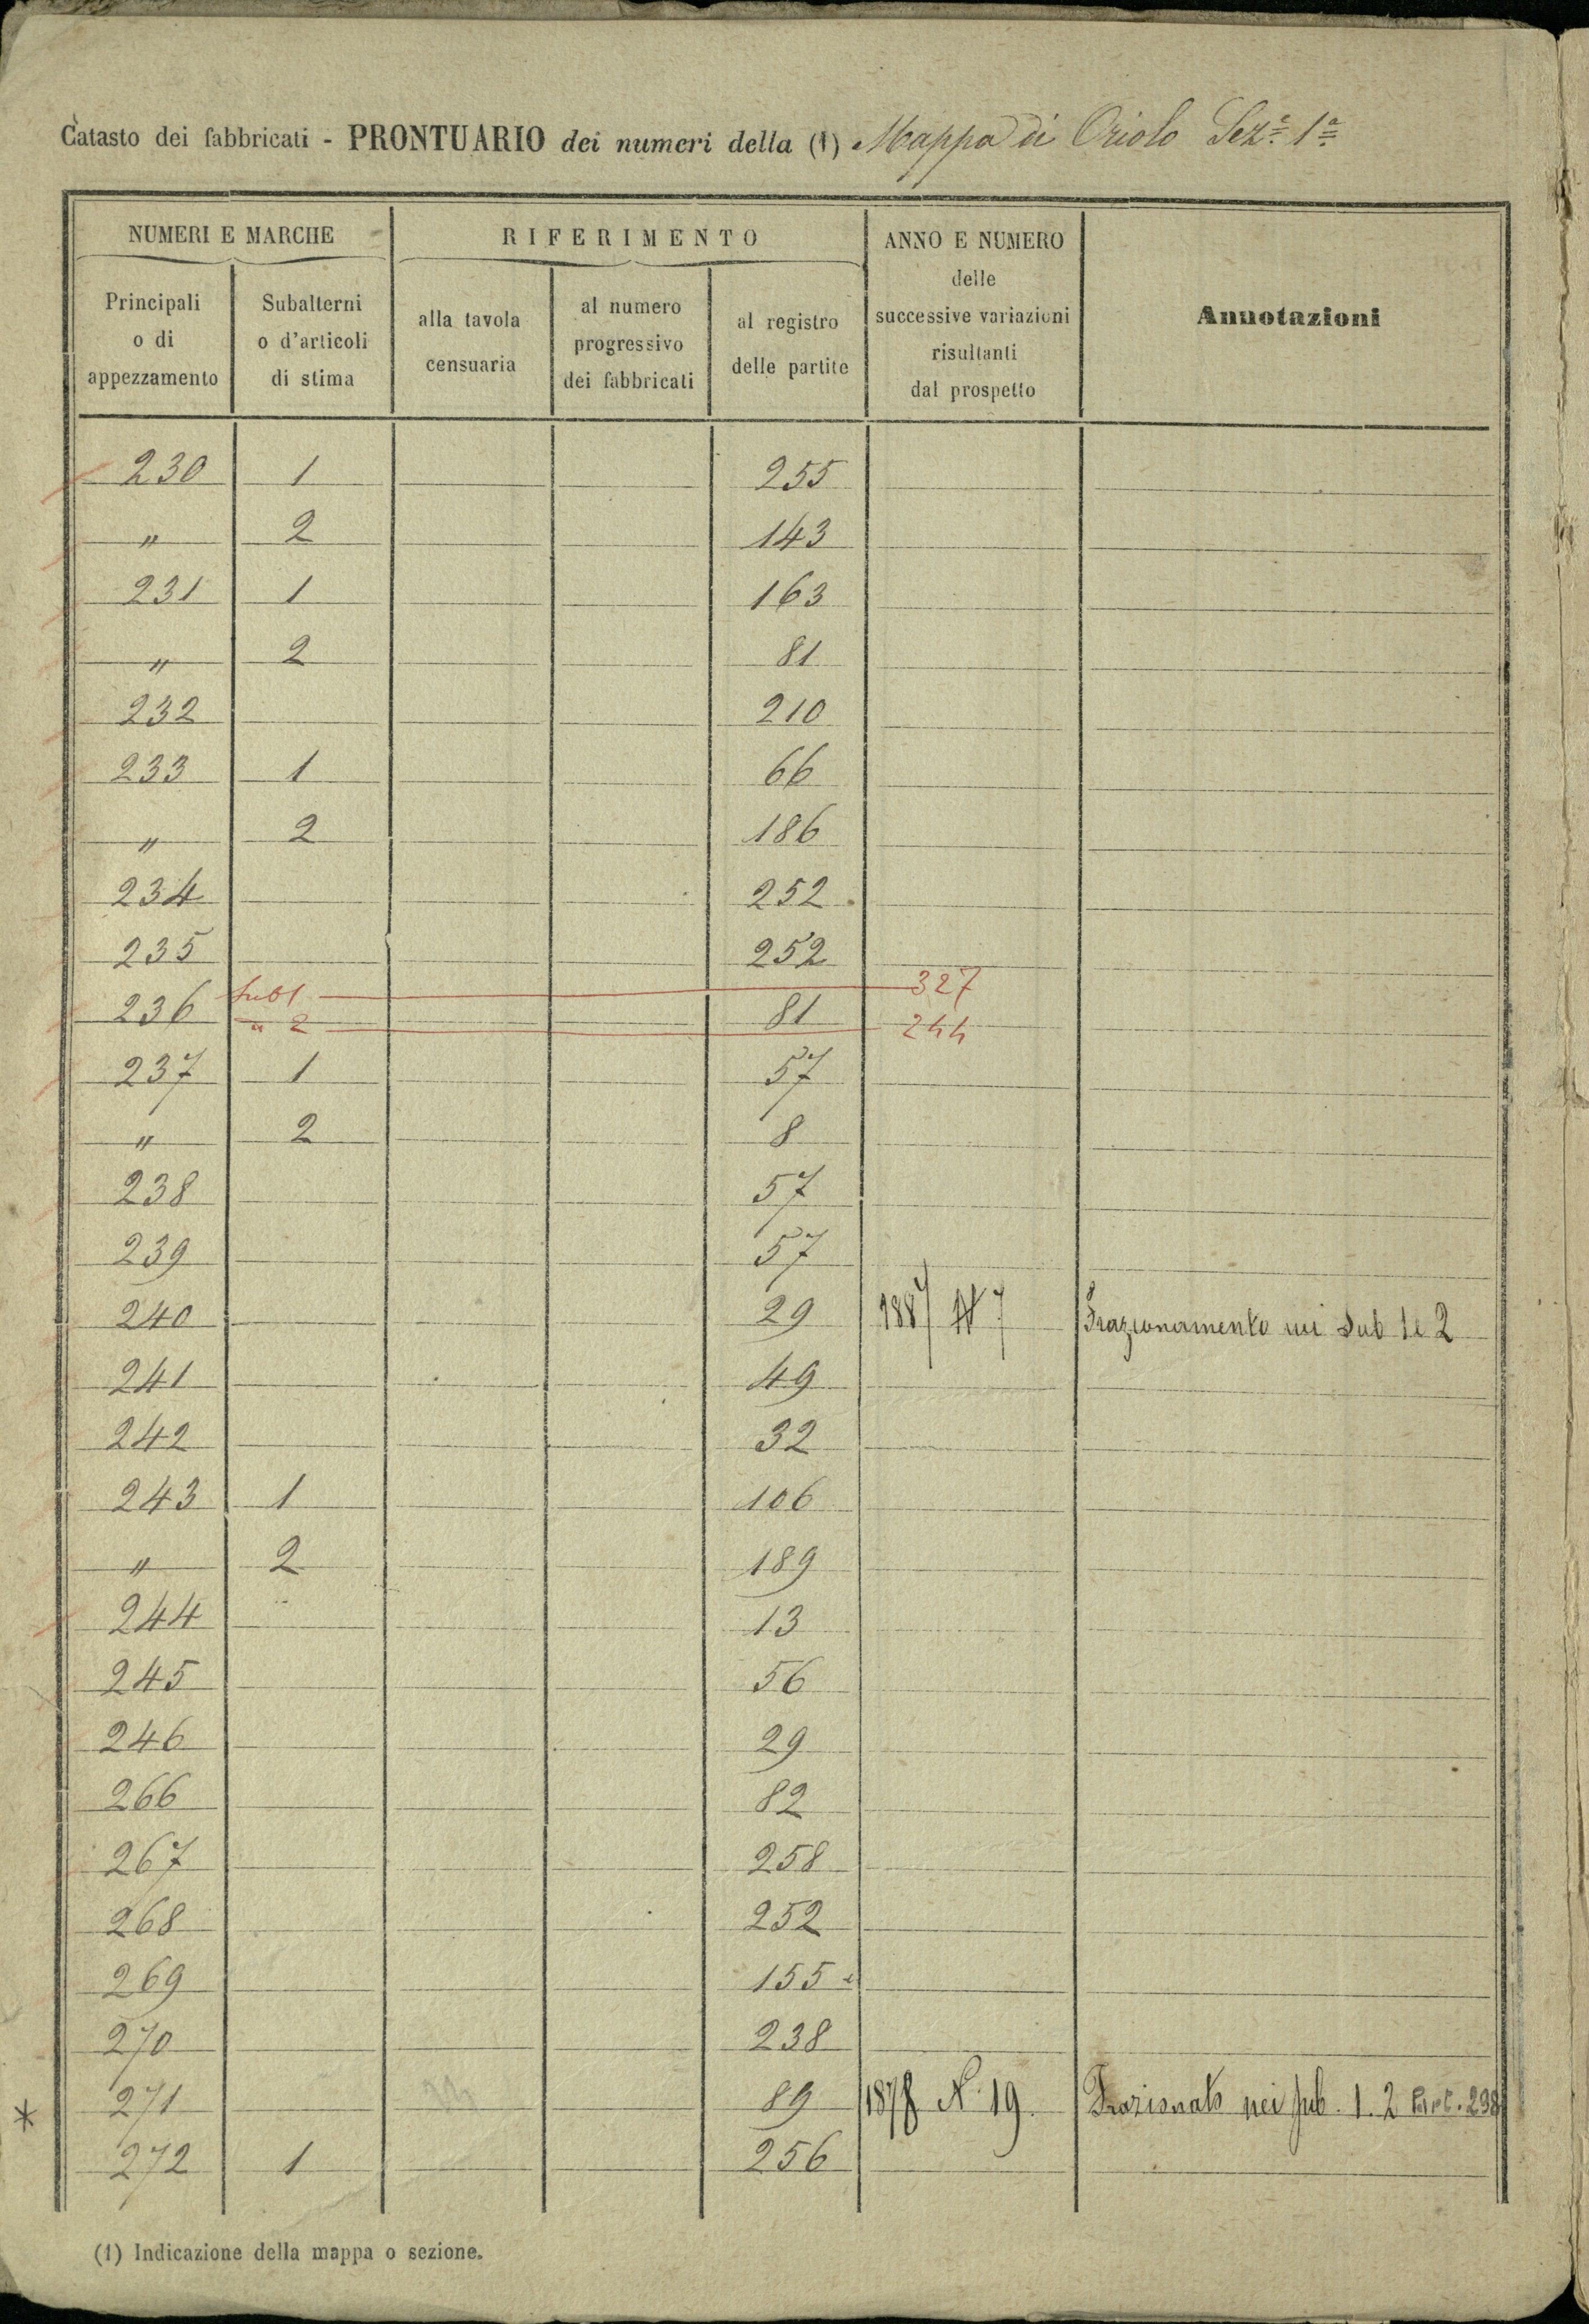 Catasto dei fabbricati - PRONTUARIO dei numeri della (1) Mappa di Oriolo Sez.ª 1ª
NUMERI E MARCHE RIFERIMENTO ANNO E NUMERO delle successive variazioni risultanti dal prospetto Annotazioni
Principali o di appezzamento Subalterni o d'articoli di stima alla tavola censuaria al numero progressivo dei fabbricati al registro delle partite
230 1 255
" 2 143
231 1 163
" 2 81
232 210
233 1 66
" 2 186
234 252
235 252
Sub 1 327
236 81
" 2 244
237 1 57
" 2 8
238 57
239 57
240 29 1887 N 7 Frazionamento nei Sub 1 e 2
241 49
242 32
243 1 106
" 2 189
244 13
245 56
246 29
266 82
267 258
268 252
269 155
270 238
* 271 89 1878 N. 19. Frazionato nei sub. 1. 2 Part. 298
272 1 256
(1) Indicazione della mappa o sezione.